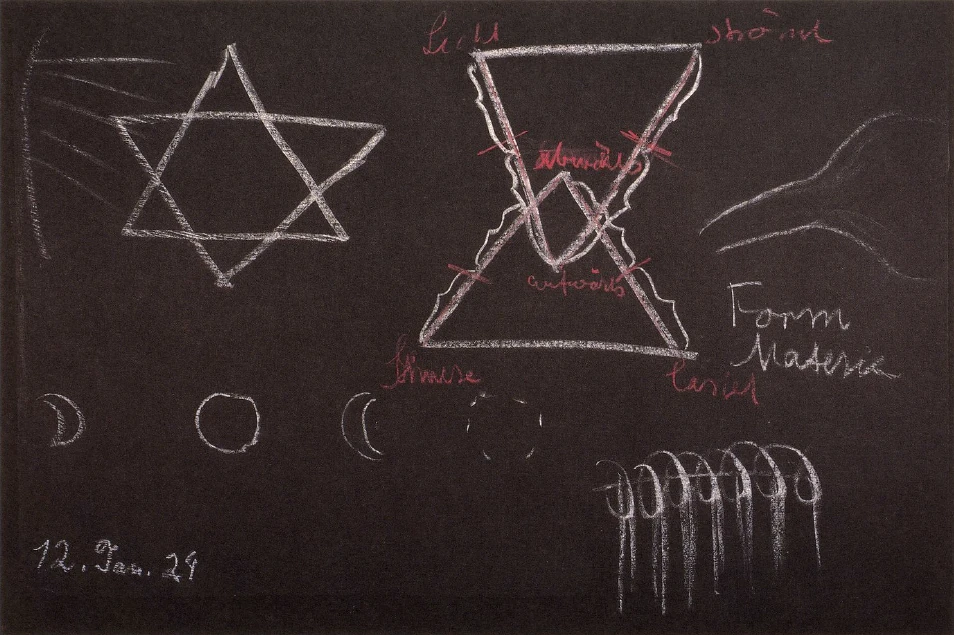 Licht strömt
abwärts
aufwärts
Schwere lastet
Form
Materie
12. Jan. 24